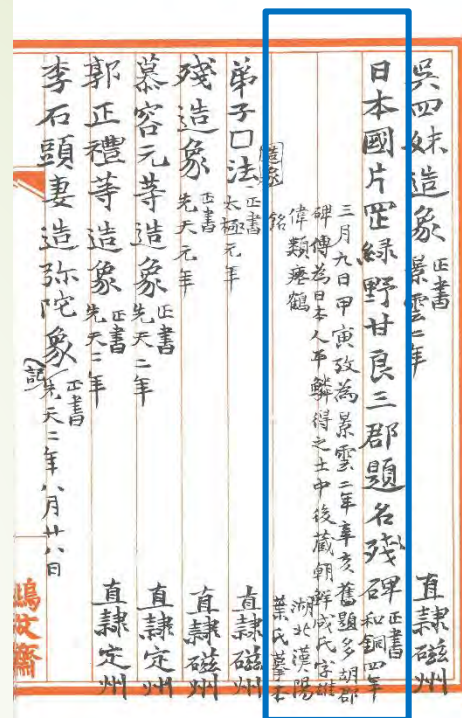 吳四妹造象 正書 景雲二年 直隸磁州
日本國片罡緑野甘良三郡題名殘碑 正書 和銅四年
三月九日甲寅攷為景雲二年辛亥舊題多胡郡
碑傳為日本人平鱗得之土中後藏朝鮮成氏字雄
偉類瘞鶴銘 湖北漢陽葉氏摹本
弟子口法造象 正書 太極元年 直隸磁州
殘造象 正書 先天元年 直隸磁州
慕容元等造象 正書 先天二年 直隸定州
郭正禮等造象 正書 先天二年 直隸定州
李石頭妻造弥陀象記 正書 先天二年八月廿八日
鴻文齋